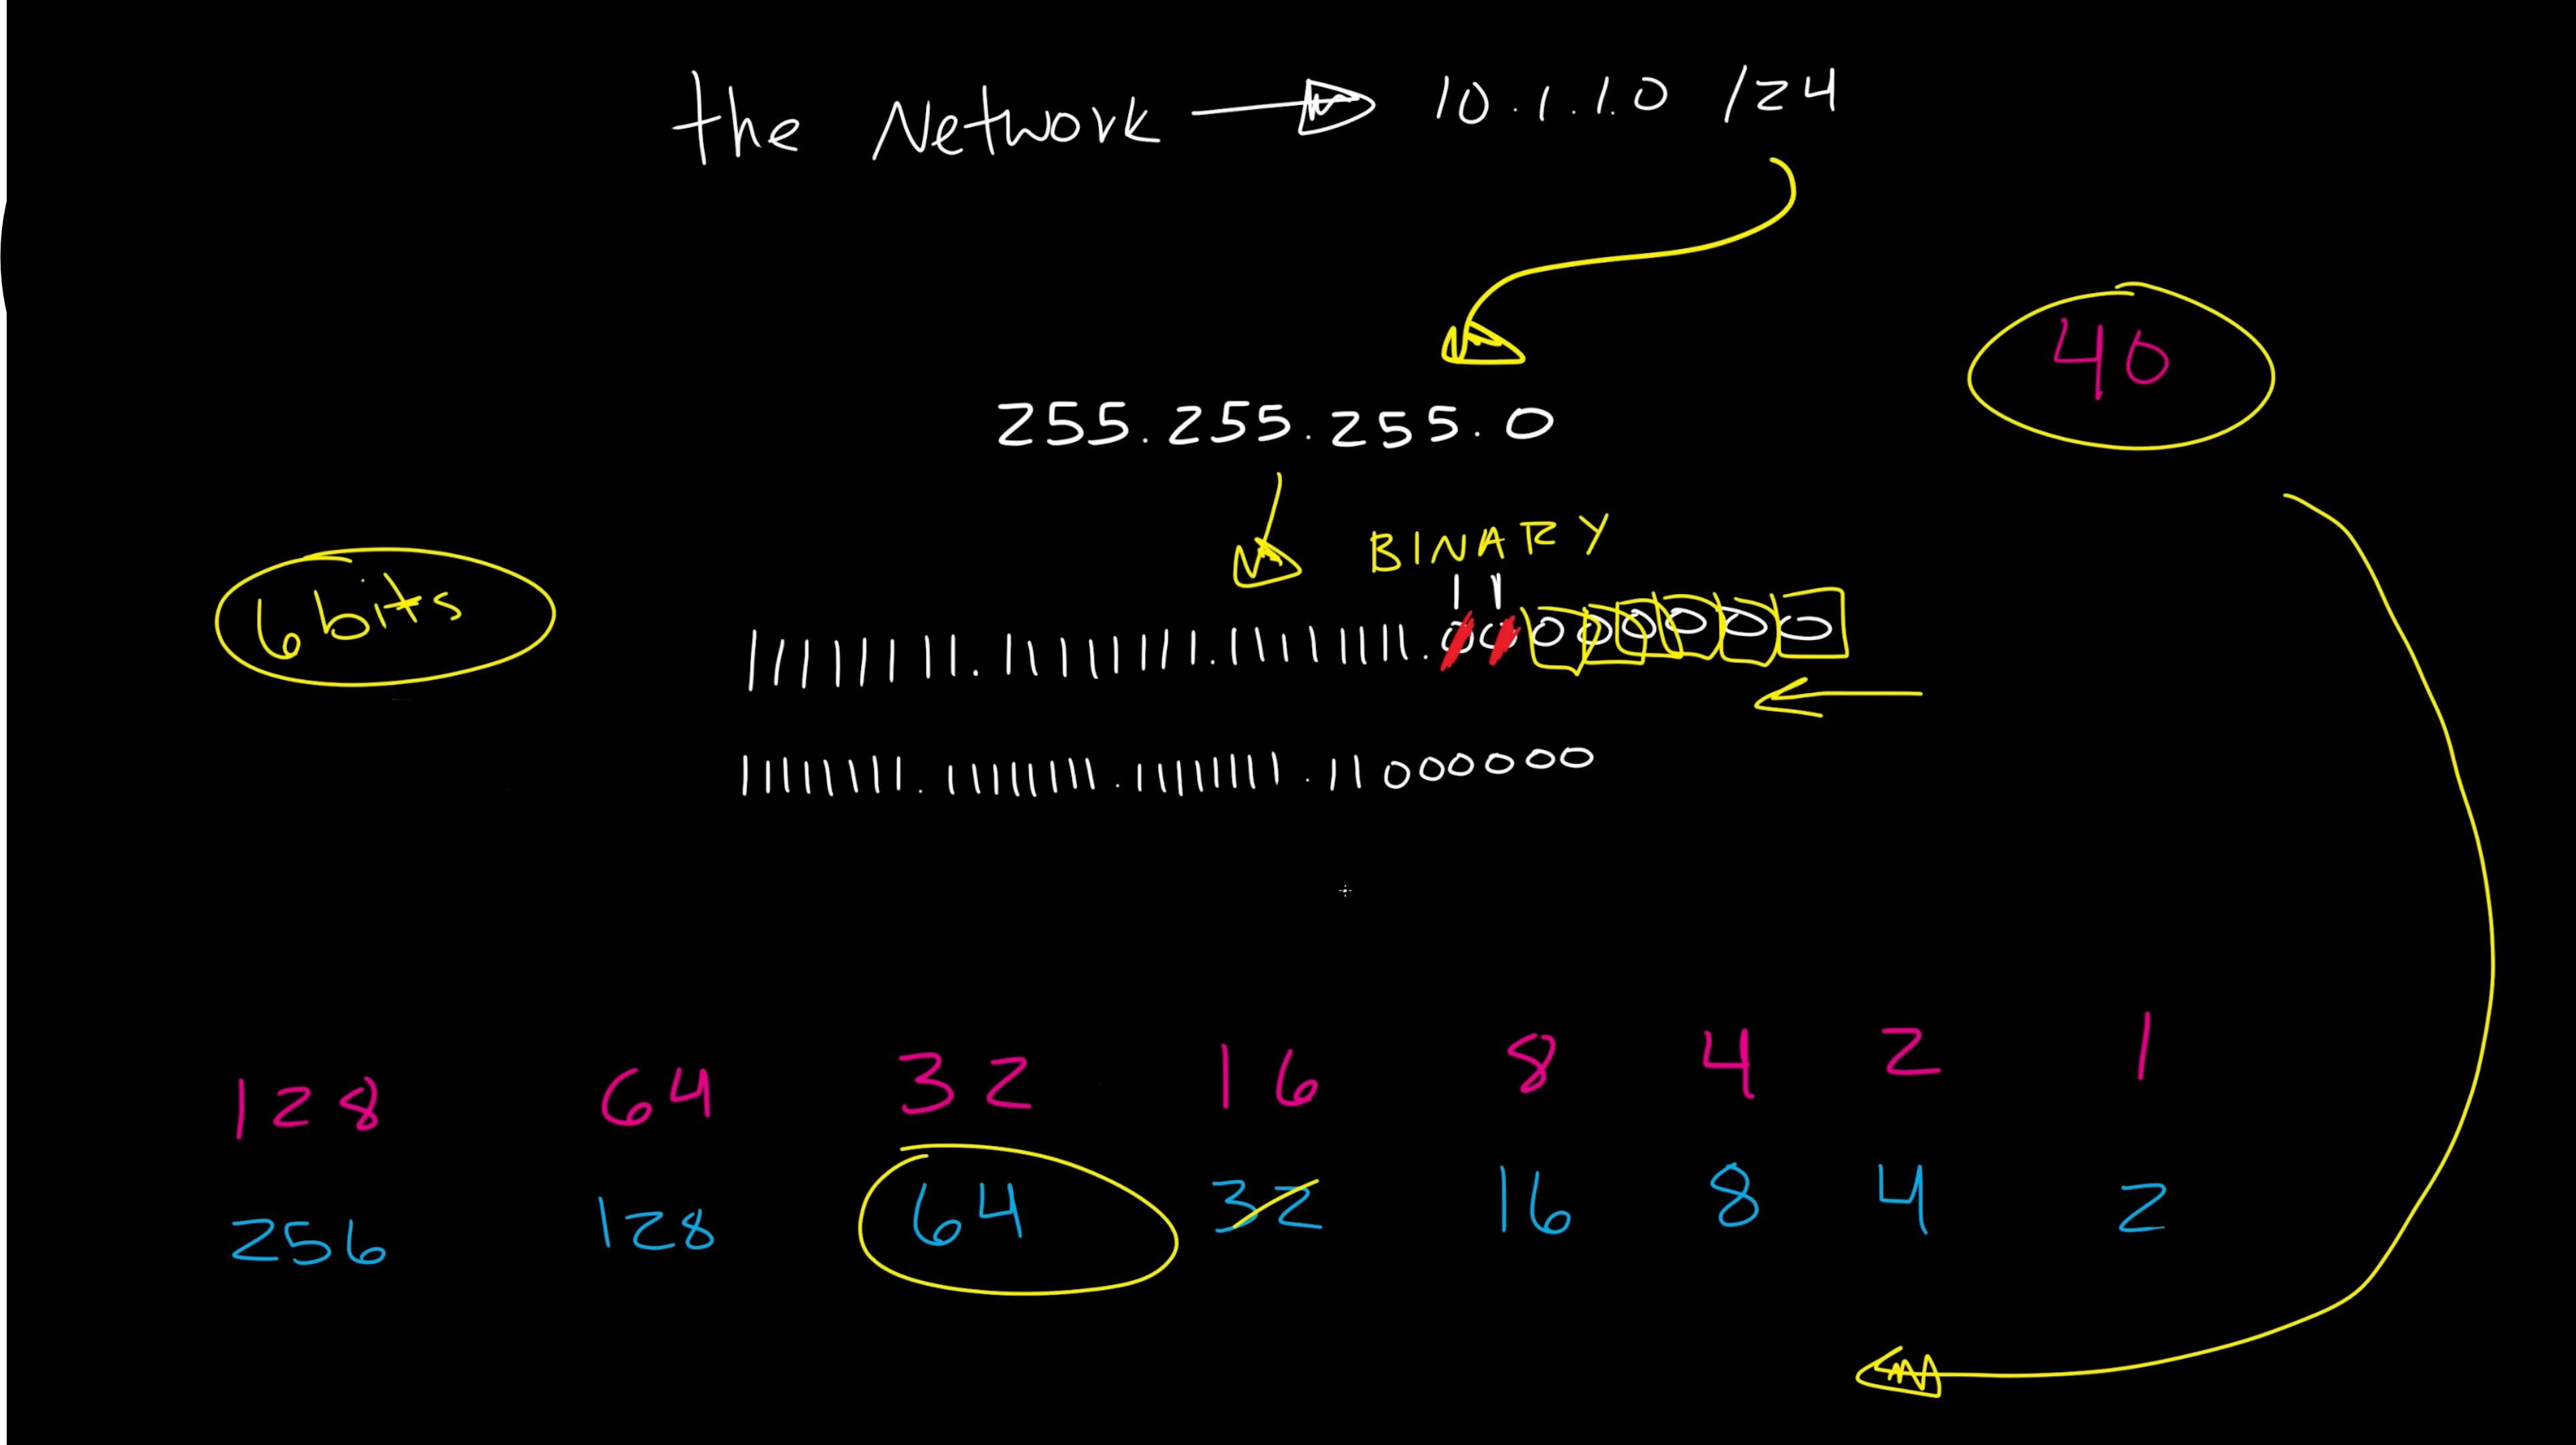 the Network → 10.1.1.0 /24
40
255.255.255.0
BINARY
6 bits
11
11111111.11111111.11111111.00000000
11111111.11111111.11111111.11000000
128 64 32 16 8 4 2 1
256 128 64 32 16 8 4 2